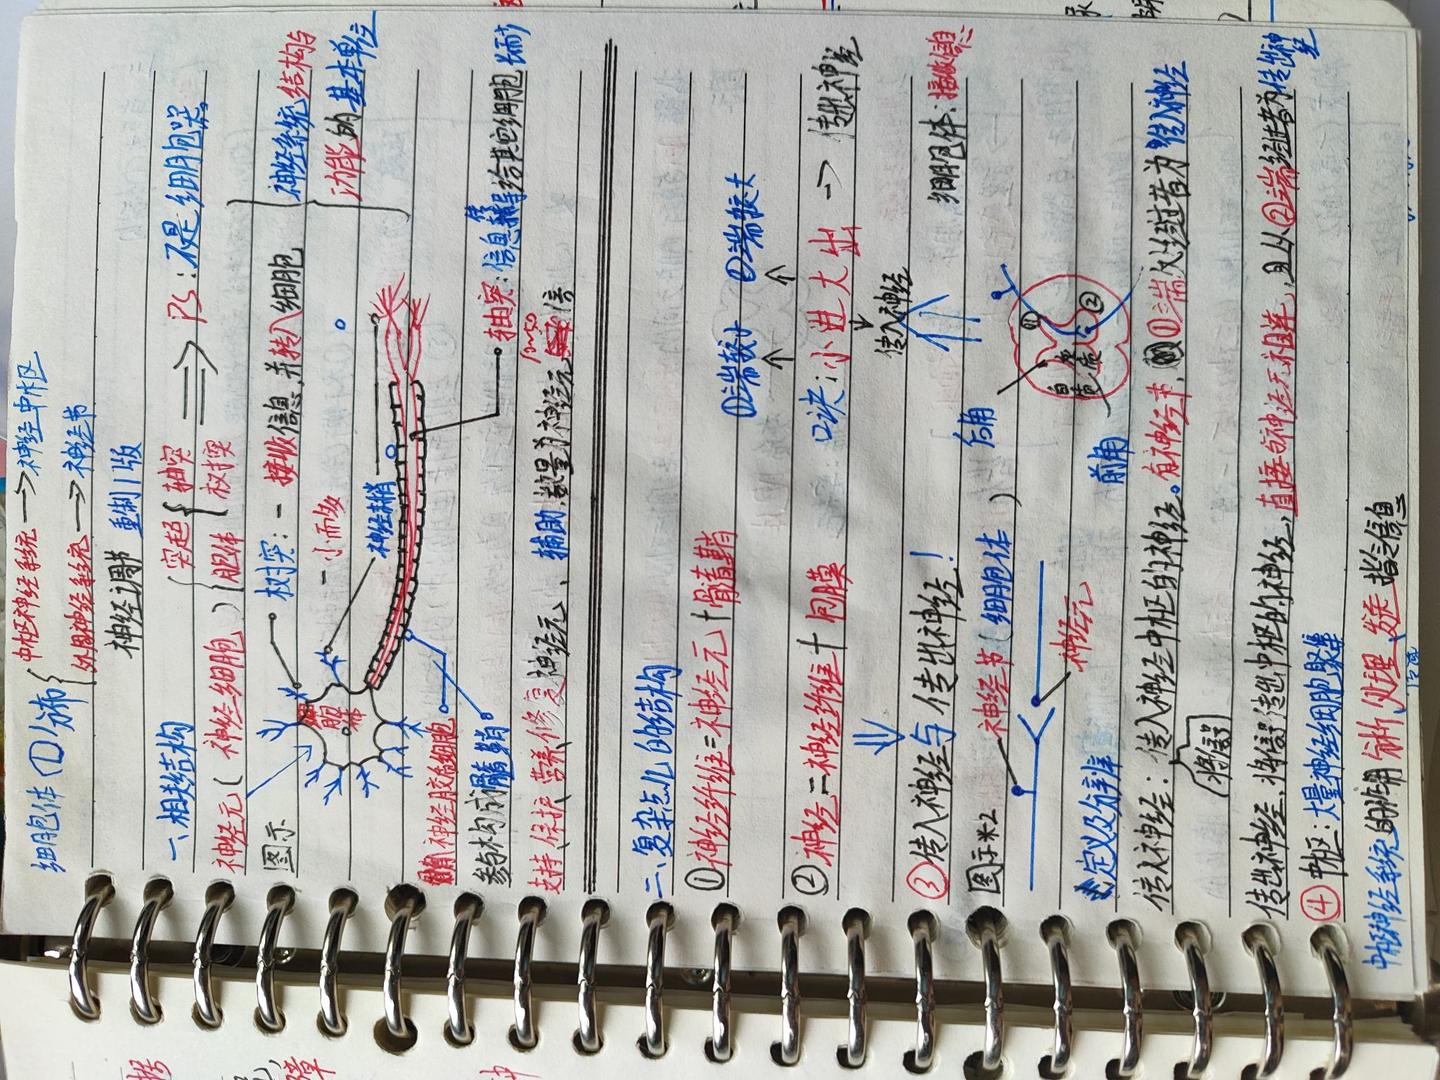 细胞体①分布
中枢神经系统→神经中枢
外周神经系统→神经节
神经调节 重制1版
一、相关结构
神经元(神经细胞)
突起
轴突
树突
胞体
PS:不是细胞哭。
图示
树突:-接收信息,并转入细胞
-小而多
神经系统结构与
功能的基本单位
细胞体
神经末梢
神经胶质细胞
参与构成髓鞘
轴突:信息传导给其它细胞 长而少
支持、保护、营养、修复神经元、辅助,数量为神经元10~50倍
二、复杂点儿的结构
①神经纤维=神经元+髓鞘
②神经=神经纤维+包膜
①端较小 ②端较大
口诀:小进大出→传出神经
传入神经
③传入神经与传出神经!
细胞体:接收信息
图示×2
神经节(细胞体)
神经元
后角
前角
①
②
灰质
白质
定义及分辨
传入神经:传入神经中枢的神经。有神经节,①端经过者为传入神经
将信号
传出神经:将信号传出中枢的神经,直接与神经元相连,且从②端经过者为传出神经
④中枢:大量神经细胞聚集
中枢神经系统 分析,处理,发送指令信息